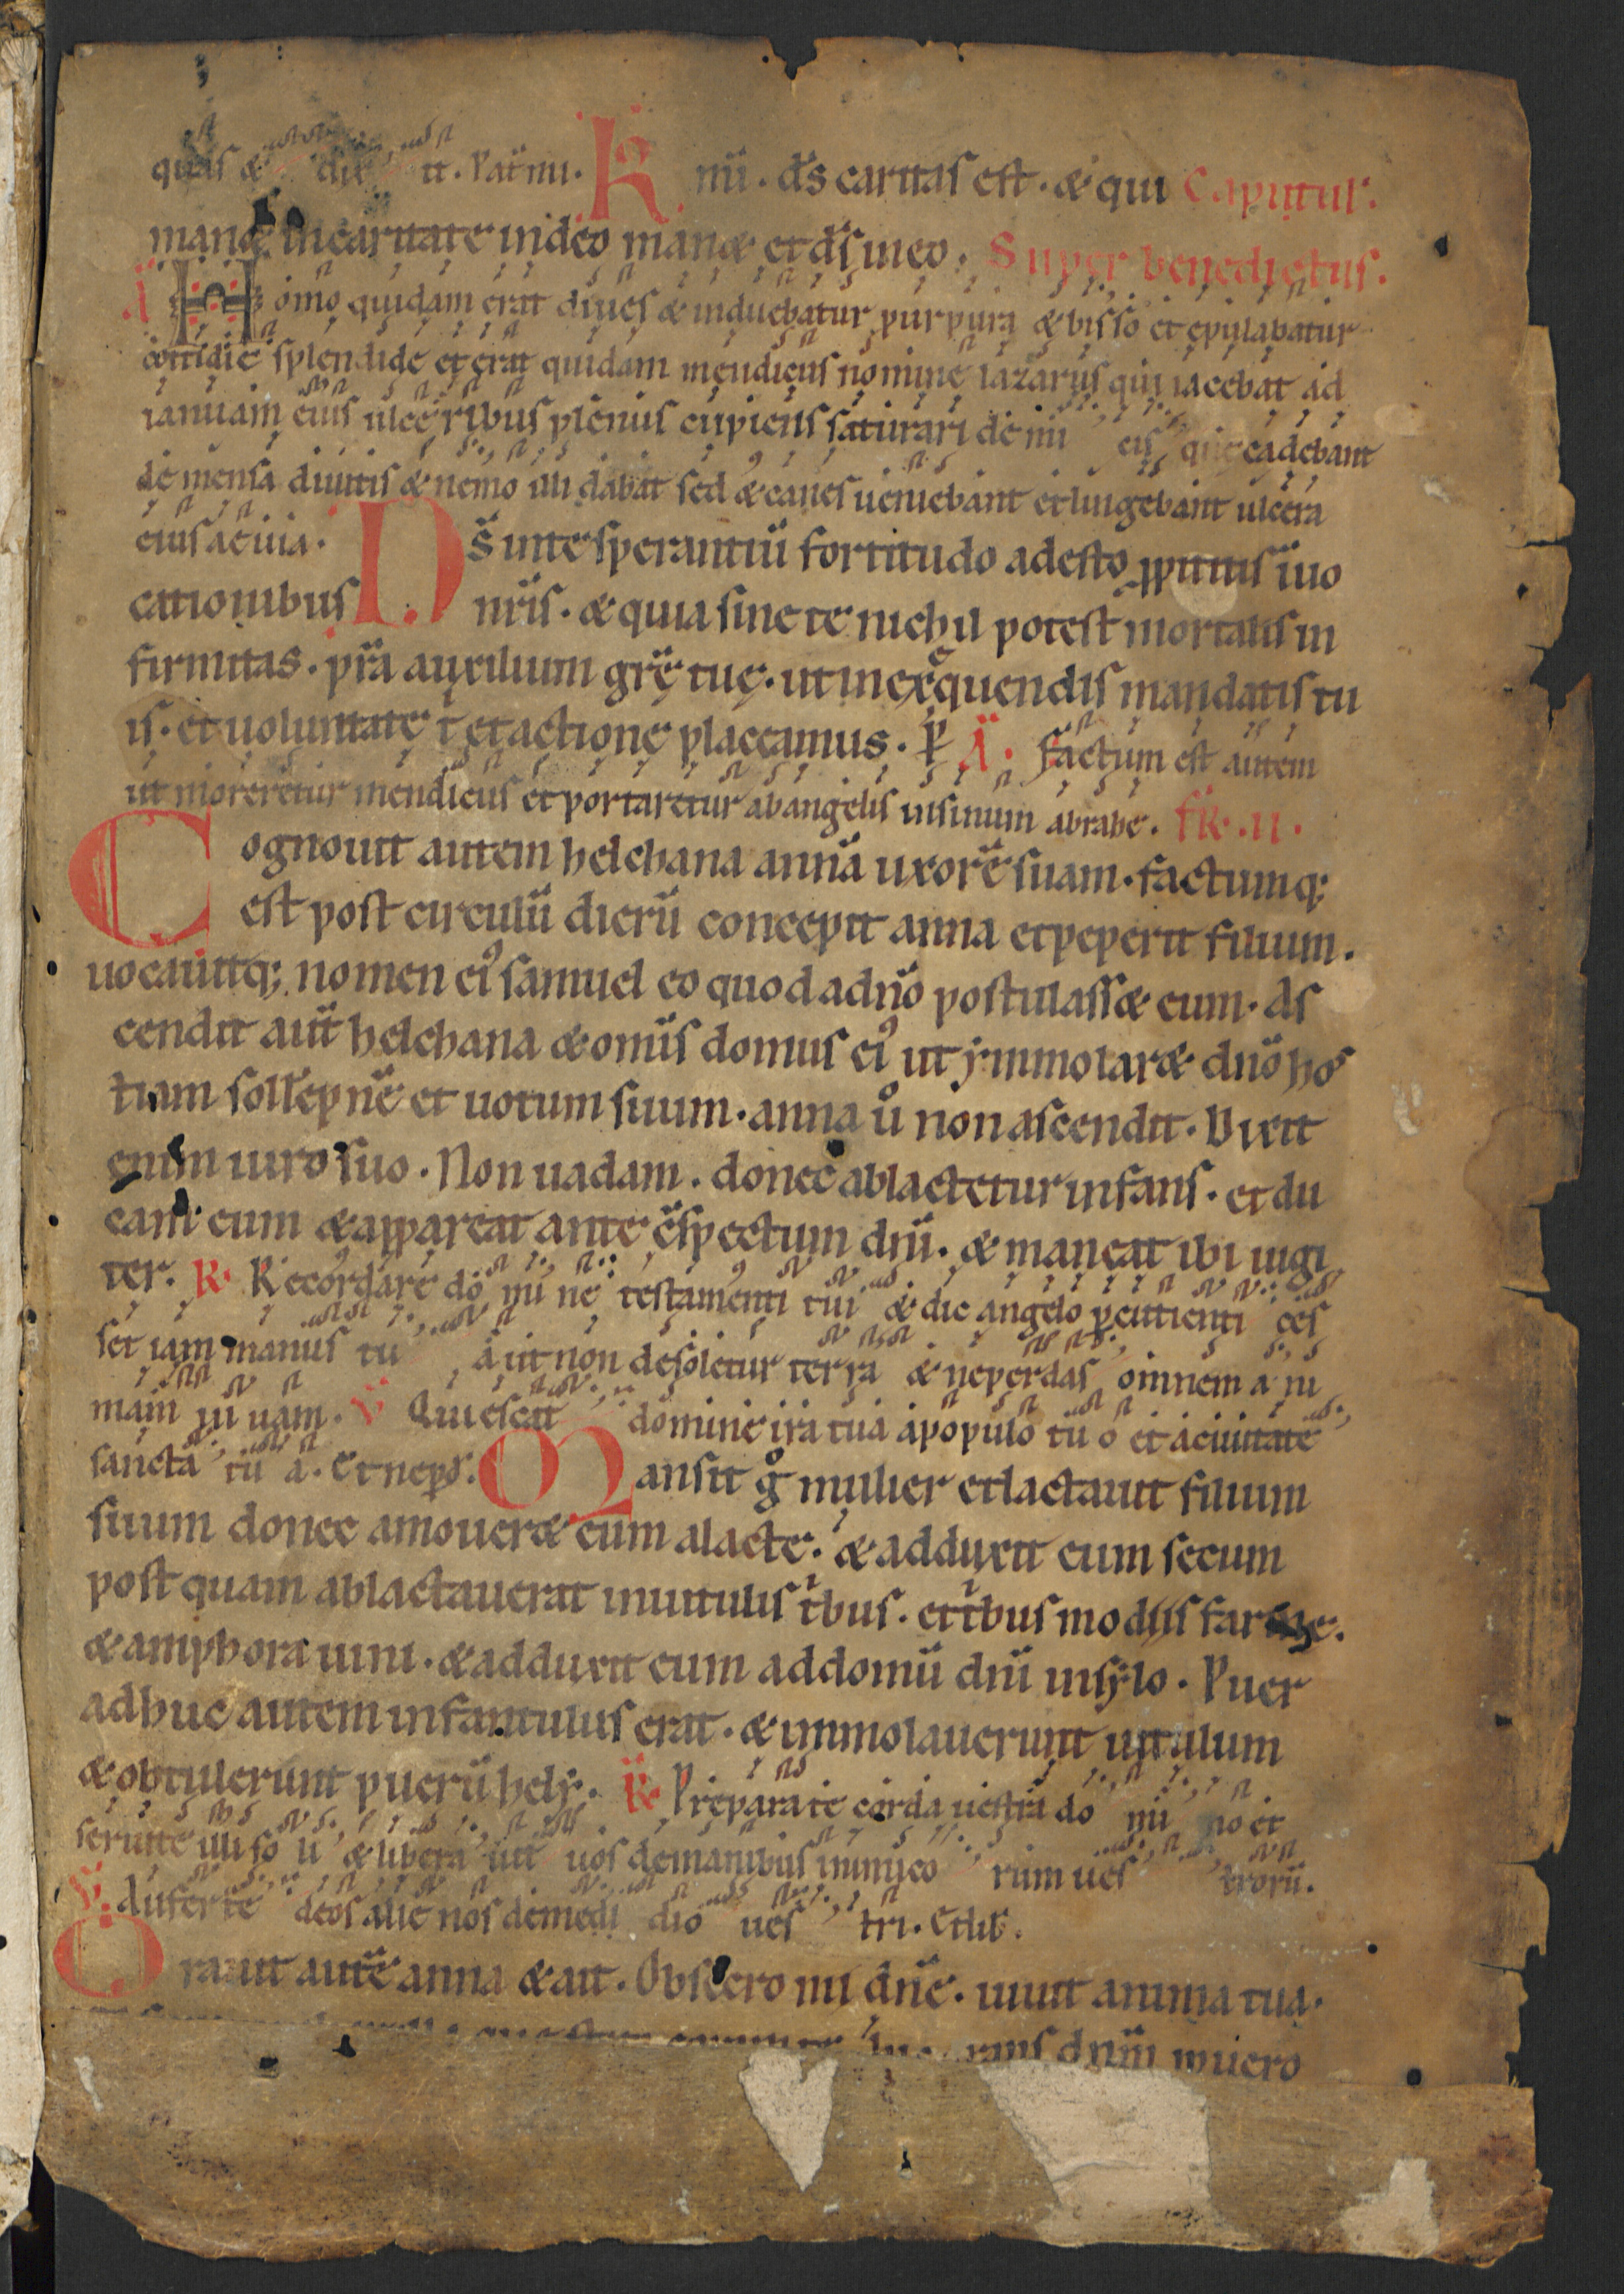 quas & dix it. Pat mi. K mi. ds caritas est. & qui Capitul.
man& incaritate indeo man& et ds ineo. Super benedictus.
A Homo quidam erat diues & induebatur purpura & bisso et epulabatur
cottidie splendide et erat quidam mendicus nomine lazarus qui iacebat ad
ianuam eius ulceribus plenus cupiens saturari de mi cis que cadebant
de mensa diuitis & nemo illi dabat sed & canes ueniebant et lingebant ulcera
eius aeuia. Ds inte sperantiū fortitudo adesto ppitius īuo
cationibus nr̄is. & quia sine te nichil potest mortalis in
firmitas. pr̄a auxilium grę tuę. ut inexequendis mandatis tu
is. et uoluntate t et actione placeamus. p A. Factum est autem
ut moreretur mendicus et portaretur abangelis insinum abrahe. FR. II.
Cognouit autem helchana annā uxorē suam. factumq;
est post circulū dierū concepit anna et peperit filium.
uocauitq; nomen ei᾿ samuel eo quod adn̄o postulass& eum. As
cendit aut̄ helchana & omīs domus ei᾿ ut ẏmmolar& dn̄o hos
tiam sollēpnē et uotum suum. anna u͛o non ascendit. Dixit
enim uiro suo. Non uadam. donec ablactetur infans. et du
cam eum & appareat ante ᾿spectum dn̄i. & maneat ibi iugi
ter. R. Recordare do mi ne testamenti tui & dic angelo pcutienti ces
set iam manus tu a ut non desoletur terra & neperdas omnem a ni
mam ui uam. V Quiescat domine ira tua apopulo tu o et aciuitate
sancta tu a. Et neperd. Mansit g° mulier et lactauit filium
suum donec amouer& eum alacte. & adduxit eum secum
post quam ablactauerat inuitulis tbus. et tbus modiis farine.
& amphora uini. & adduxit eum addomū dn̄i insẏlo. Puer
adhuc autem infantulus erat. & immolauerunt uitulum
& obtulerunt puerū helẏ. R. Preparate corda uestra do mi no et
seruite illi so li & libera uit uos demanibus inimico rum ues trorū.
V. Auferte deos alie nos demedi dio ues tri. Et lib.
Orauit autē anna & ait. Obsecro mi dn̄e. uiuit anima tua.
rans dn̄m uiero